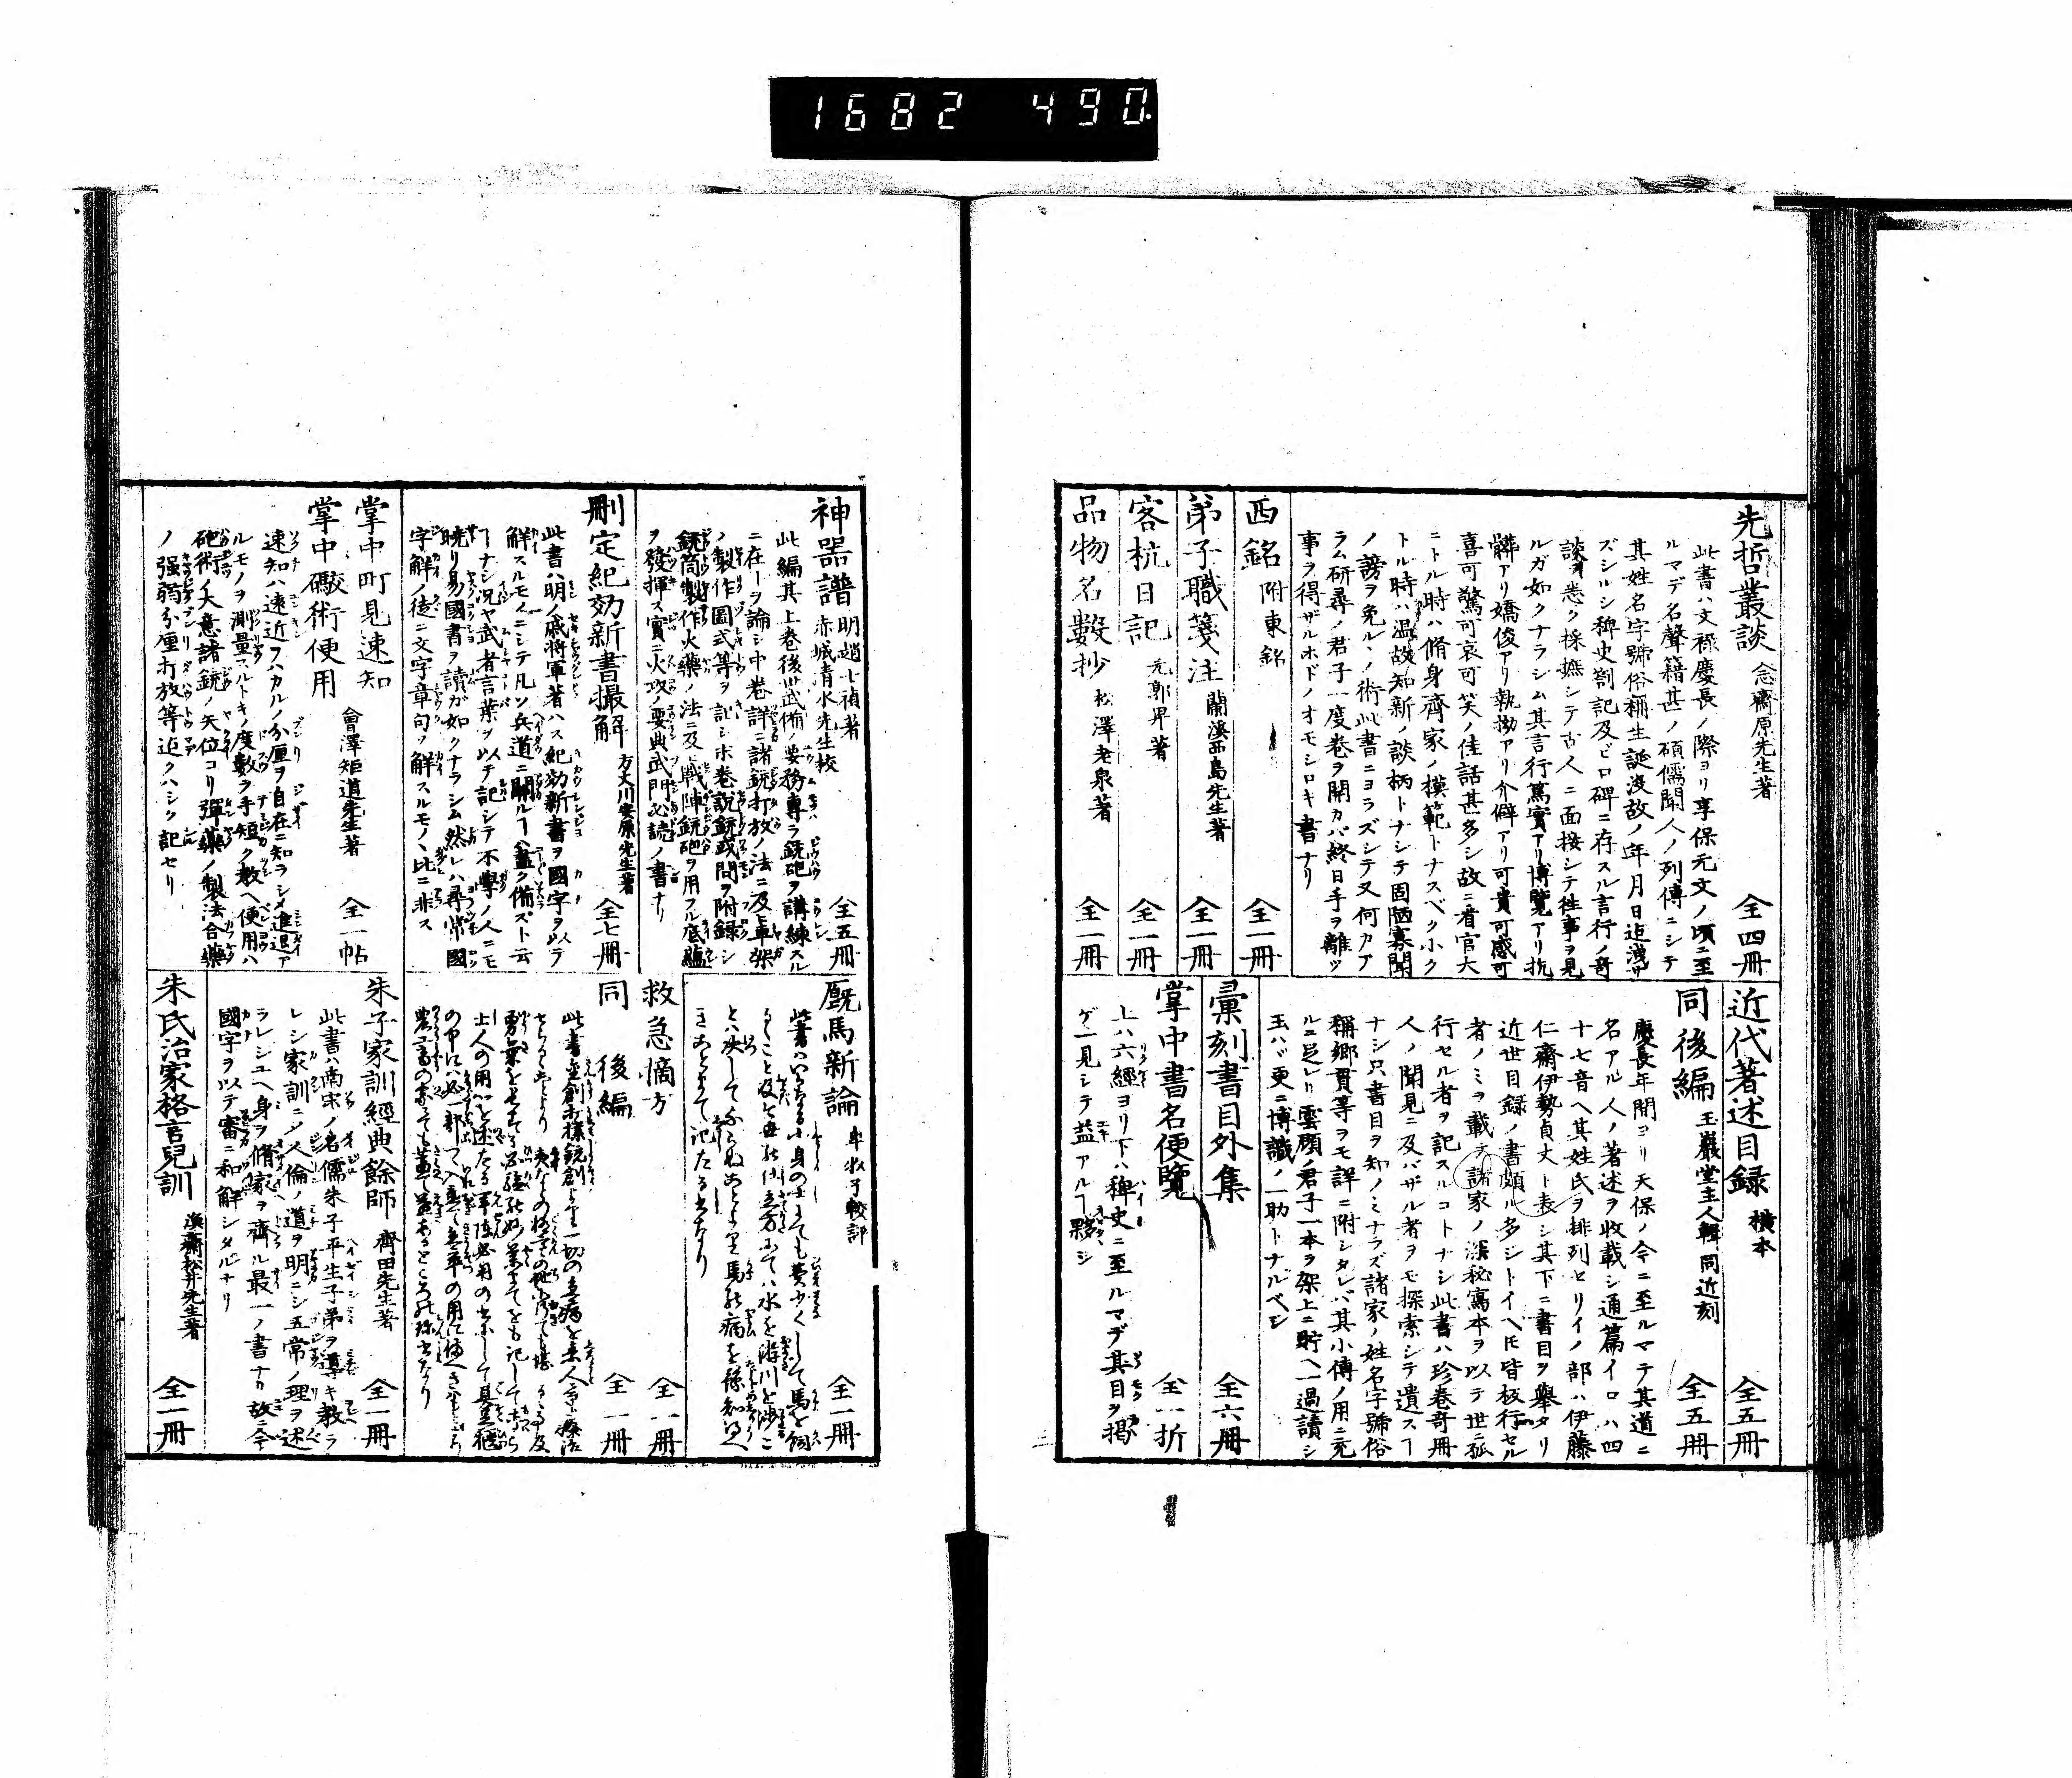 1682 490
先哲叢談 念齋原先生著 全四冊
此書ハ文祿慶長ノ際ヨリ享保元文ノ頃ニ至
ルマデ名聲籍甚ノ碩儒聞人ノ列傳ニシテ
其姓名字號俗稱生誕没故ノ年月日迄洩サ
ズシルシ稗史劄記及ビ口碑ニ存スル言行ノ奇
談ヲ悉ク採摭シテ古人ニ面接シテ徃事ヲ見
ルガ如クナラシム其言行篤實アリ博覽アリ抗
髒アリ嬌俊アリ執拗アリ介僻アリ可貴可感可
喜可驚可哀可笑ノ佳話甚多シ故ニ看官大
ニトル時ハ脩身齊家ノ模範トナスベク小ク
トル時ハ温故知新ノ談柄トナシテ固陋寡聞
ノ謗ヲ免ルヽノ術此書ニヨラズシテ又何カア
ラム研尋ノ君子一度巻ヲ開カバ終日手ヲ離ツ
事ヲ得ザルホドノオモシロキ書ナリ
西銘 附東銘 全一冊
弟子職箋注 蘭溪西島先生著 全一冊
客杭日記 元郭畀著 全一冊
品物名數抄 松澤老泉著 全一冊
近代著述目録 横本 全五冊
同後編 玉巖堂主人輯 同近刻 全五冊
慶長年間ヨリ天保ノ今ニ至ルマテ其道ニ
名アル人ノ著述ヲ收載シ通篇イロハ四
十七音ヘ其姓氏ヲ排列セリイノ部ハ伊藤
仁齋伊勢貞丈ト表シ其下ニ書目ヲ舉タリ
近世目録ノ書頗ル多シトイヘ𪜈皆板行セル
者ノミヲ載テ諸家ノ深秘寫本ヲ以テ世ニ孤
行セル者ヲ記スルコトナシ此書ハ珍巻奇冊
人ノ聞見ニ及バザル者ヲモ探索シテ遺スヿ
ナシ只書目ヲ知ノミナラズ諸家ノ姓名字號俗
稱郷貫等ヲモ詳ニ附シタレバ其小傳ノ用ニ充
ルニ足レリ雲顧ノ君子一本ヲ架上ニ貯ヘ一過讀シ
玉ハヾ更ニ博識ノ一助トナルベシ
彙刻書目外集 全六冊
掌中書名便覽 全一折
上ハ六經ヨリ下ハ稗史ニ至ルマデ其目ヲ掲
ゲ一見シテ益アルヿ夥シ
神器譜 明趙士禎著 赤城清水先生校 全五冊
此編其上巻後世武備ノ要務專ラ銃砲ヲ講練スル
ニ在ーヲ論シ中巻詳ニ諸銃打放ノ法ニ及ヒ車架
ノ製作圖式等ヲ記シ下巻説銃或問ヲ附録シ
銃筒製作火藥ノ法ニ及ヒ戰陣銃砲ヲ用フル底蘊
ヲ發揮ス實ニ火攻ノ要典武門必読ノ書ナリ
刪定紀効新書撮解 方丈川安原先生著 全七冊
此書ハ明ノ戚將軍著ハス紀効新書ヲ國字ヲ以テ
解スルモノニシテ凡ソ兵道ニ關ルヿハ盡ク備ズト云
ヿナシ況ヤ武者言葉ヲ以テ記シテ不學ノ人ニモ
曉リ易國書ヲ讀ガ如クナラシム然レハ尋常國
字解ノ徒ニ文字章句ヲ解スルモノヽ比ニ非ス
掌中町見速知
掌中礮術便用 會澤矩道先生著 全一帖
速知ハ速近ヲハカルノ分厘ヲ自在ニ知ラシメ進退ア
ルモノヲ測量スルトキノ度數ヲ手短ク教ヘ便用ハ
砲術ノ大意諸銃ノ矢位コリ彈藥ノ製法合藥
ノ强弱分厘打放等迄クハシク記セリ
厩馬新論 牟牧子較評 全一冊
救急摘方 全一冊
同 後編 全一冊
朱子家訓經典餘師 齊田先生著 全一冊
此書ハ南宋ノ名儒朱子平生子弟ヲ導キ教ラ
レシ家訓ニシテ人倫ノ道ヲ明ニシ五常ノ理ヲ述
ラレシユヘ身ヲ脩家ヲ齊ル最一ノ書ナリ故ニ今
國字ヲ以テ審ニ和解シタルナリ
朱氏治家格言兒訓 漢齋松井先生著 全一冊